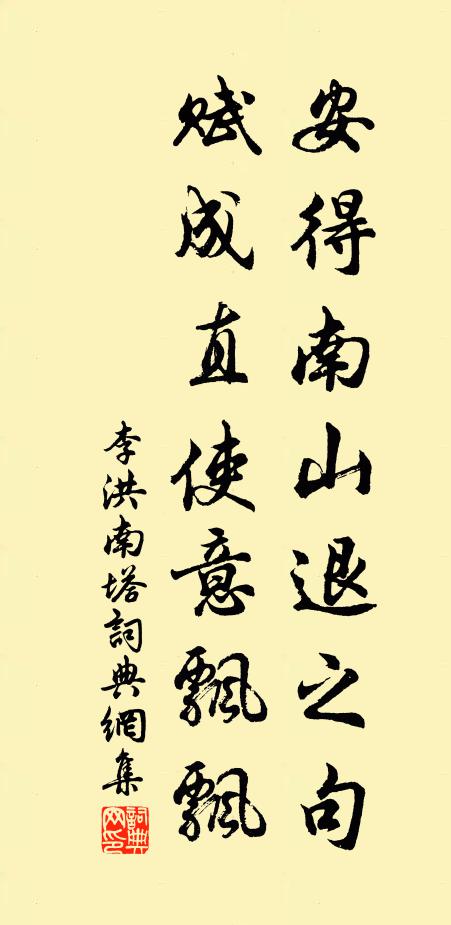 安得南山退之句
賦成直使意飄飄
李洪南塔詞典網集
詞典网印